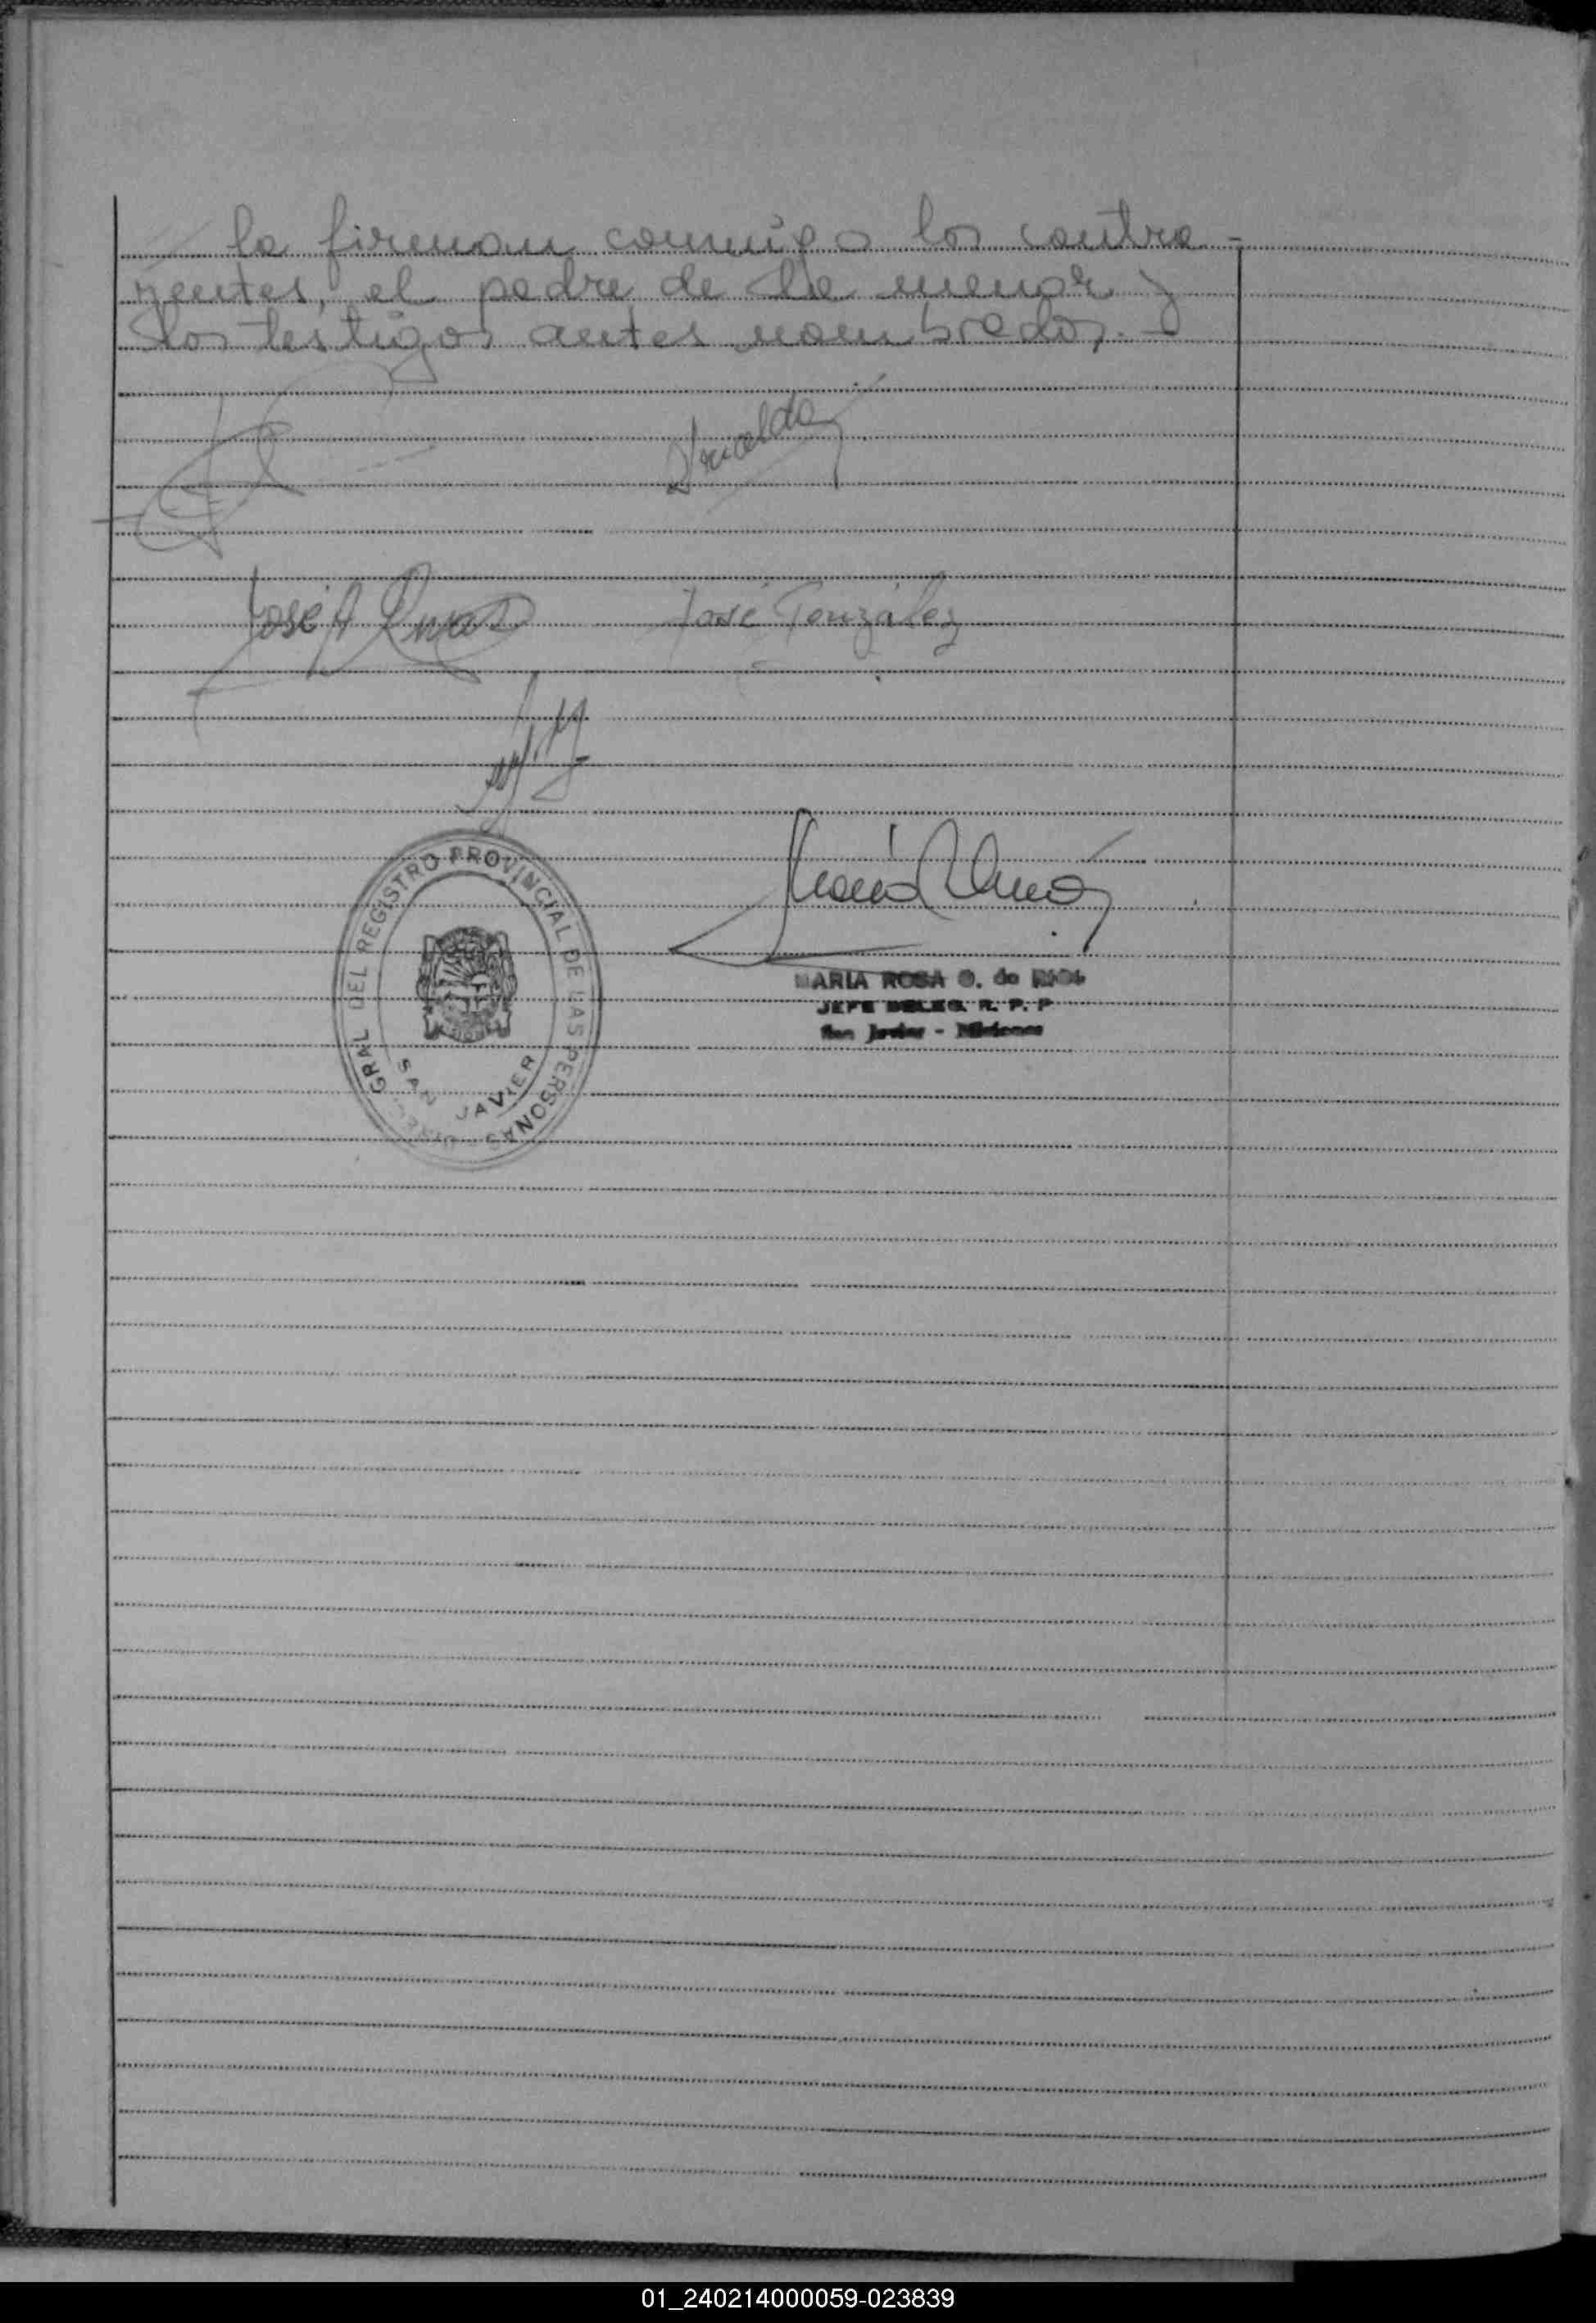 la firman conmigo los contra-
yentes, el padre de la menor y
los testigos antes nombrados.-
José A
José González
DEL REGISTRO PROVINCIAL DE LAS PERSONAS
GRAL
SAN JAVIER
María
MARIA ROSA O. de
JEFE DELEG. R. P. P.
San Javier - Misiones
01_240214000059-023839